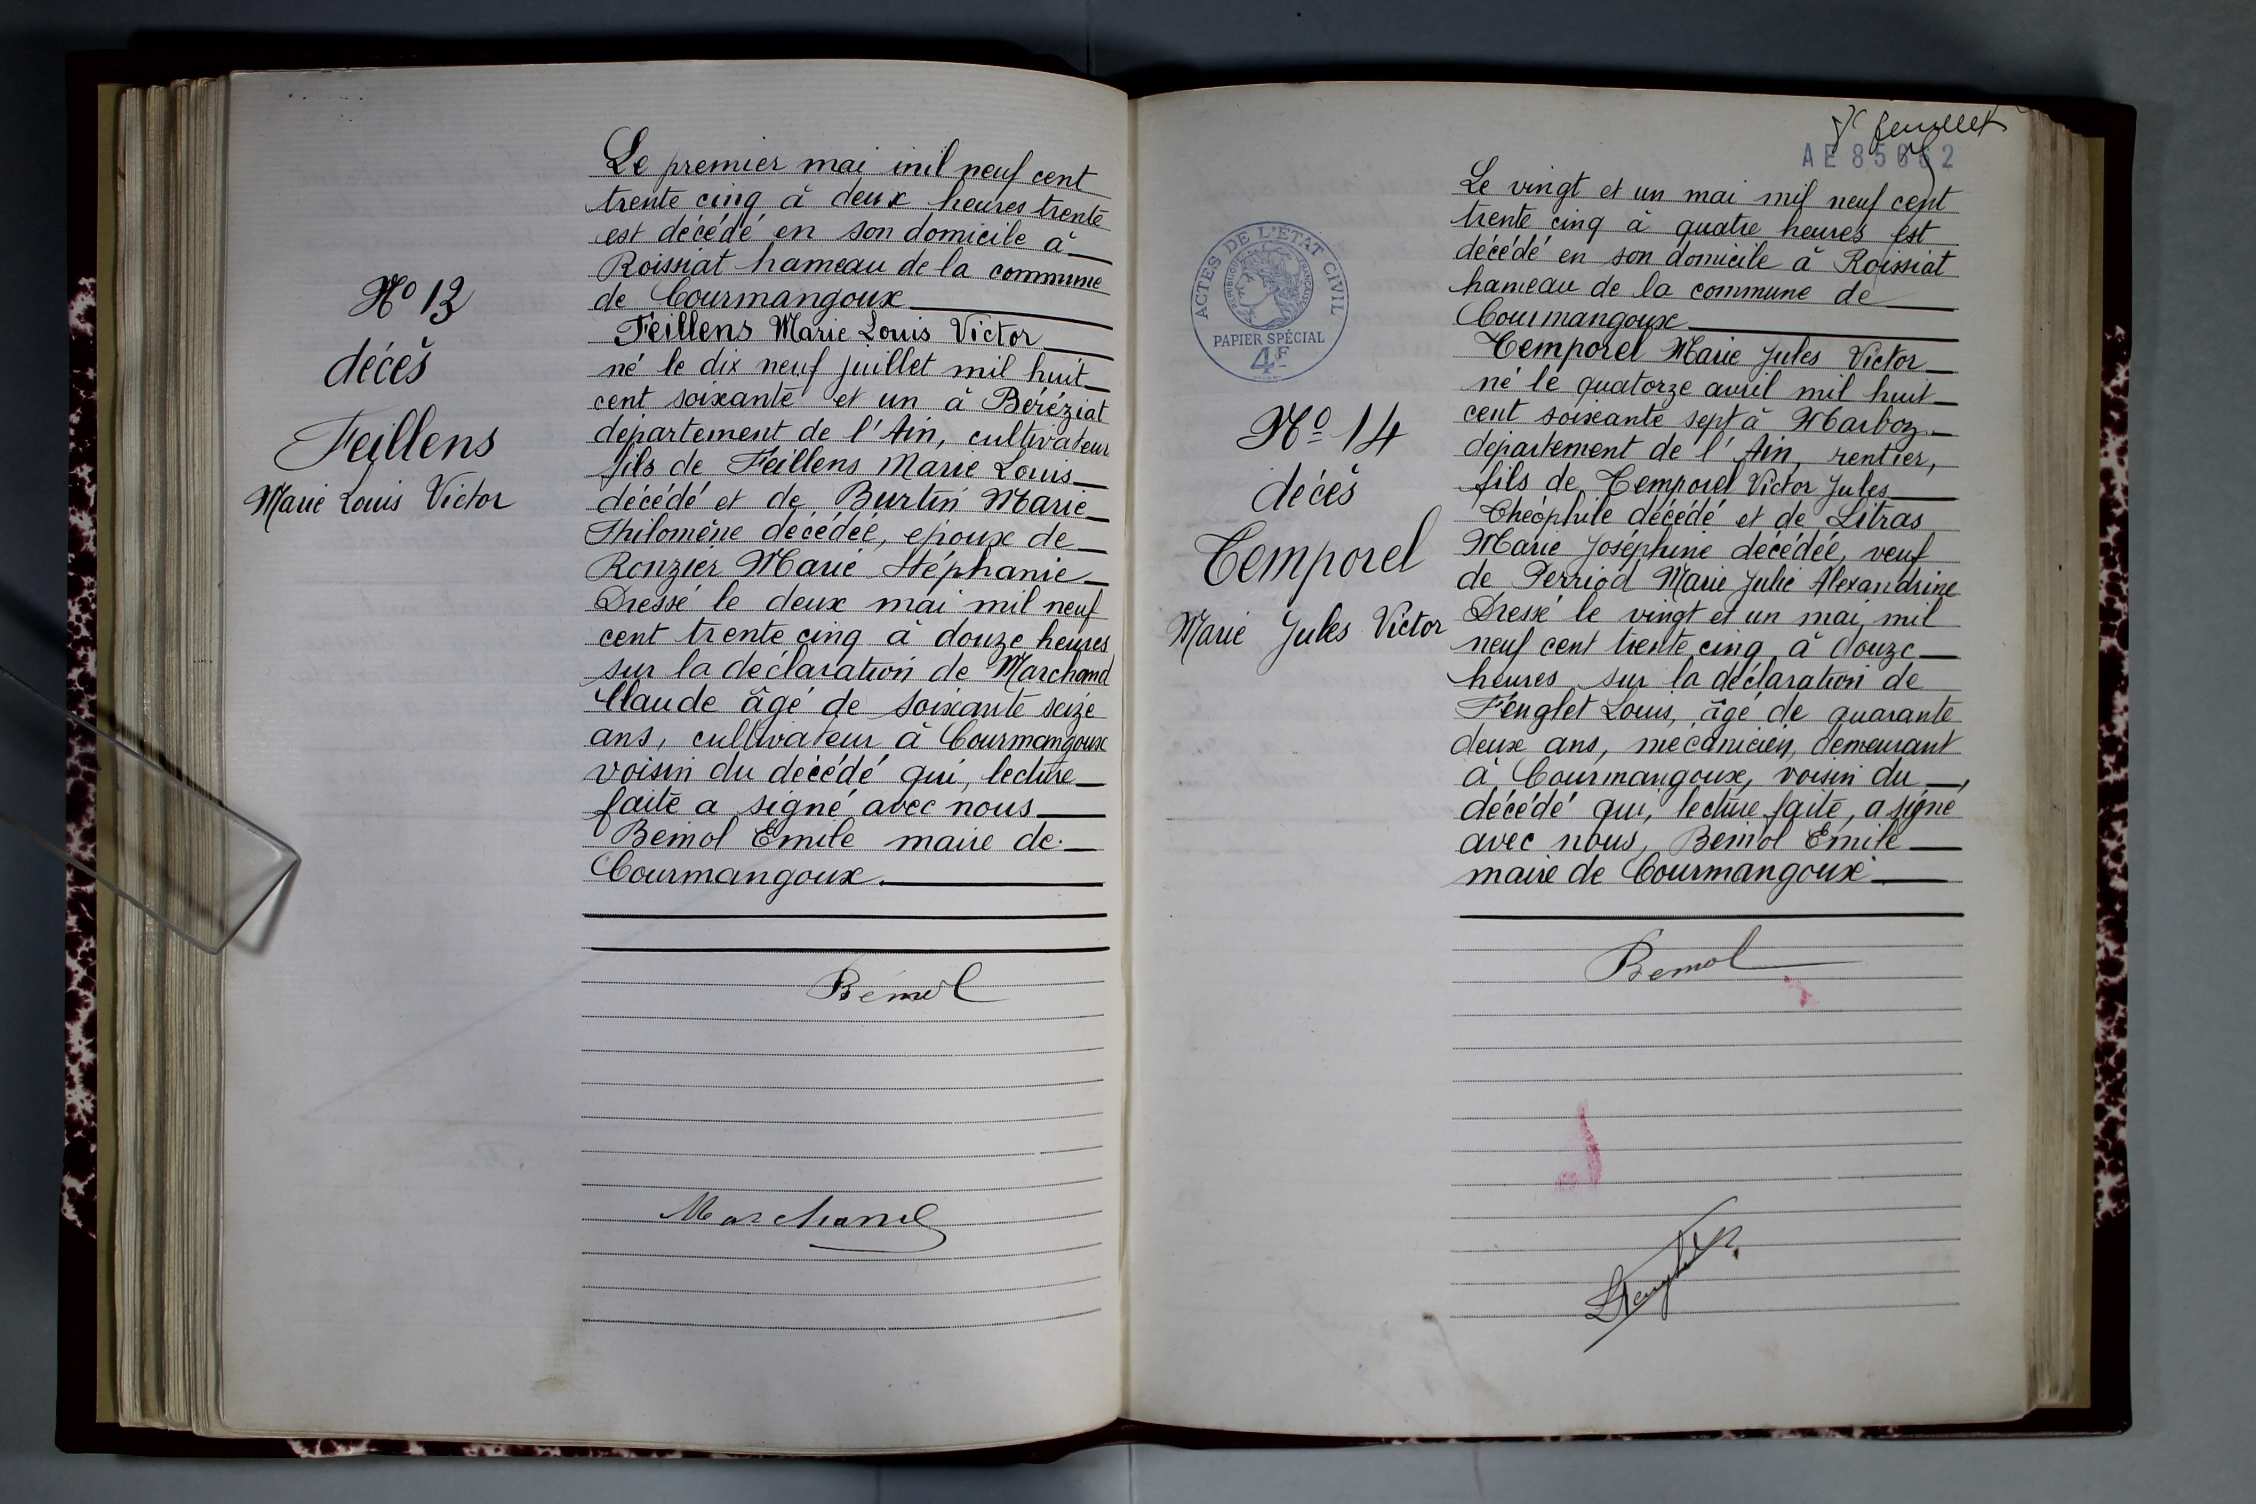 N° 13
décès
Feillens
Marie Louis Victor
Le premier mai mil neuf cent
trente cinq à deux heures trente
est décédé en son domicile à
Roissiat hameau de la commune
de Courmangoux
Feillens Marie Louis Victor
né le dix neuf juillet mil huit
cent soixante et un à Béréziat
département de l'Ain, cultivateur
fils de Feillens Marie Louis
décédé et de Burtin Marie
Philomène décédée, époux de
Ronzier Marie Stéphanie
Dressé le deux mai mil neuf
cent trente cinq à douze heures
sur la déclaration de Marchand
Claude âgé de soixante seize
ans, cultivateur à Courmangoux
voisin du décédé qui, lecture
faite a signé avec nous
Bémol Emile maire de
Courmangoux.
Bémol
Marchand
feuillet
ACTES DE L'ETAT CIVIL
REPUBLIQUE FRANÇAISE
PAPIER SPÉCIAL
4F
N° 14
décès
Temporel
Marie Jules Victor
Le vingt et un mai mil neuf cent
trente cinq à quatre heures est
décédé en son domicile à Roissiat
hameau de la commune de
Courmangoux
Temporel Marie Jules Victor
né le quatorze avril mil huit
cent soixante sept à Marboz
département de l'Ain, rentier,
fils de Temporel Victor Jules
Théophile décédé et de Litras
Marie Joséphine décédée, veuf
de Perriod Marie Julie Alexandrine
Dressé le vingt et un mai mil
neuf cent trente cinq à douze
heures sur la déclaration de
Fenglet Louis, âgé de quarante
deux ans, mécanicien, demeurant
à Courmangoux, voisin du
décédé qui, lecture faite, a signé
avec nous, Bémol Emile
maire de Courmangoux
Bemol